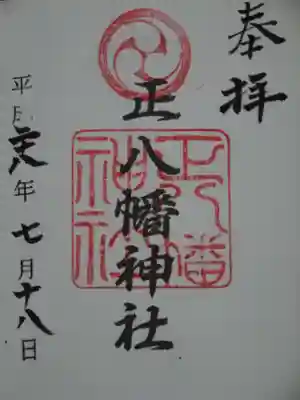 奉拝
正八幡神社
正八幡神社
平成二十八年七月十八日